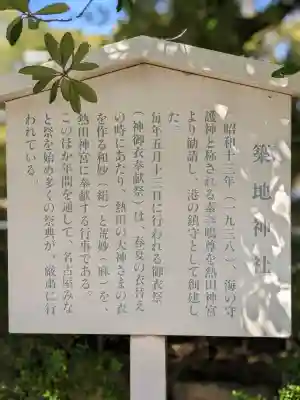 築地神社
昭和十三年（一九三八）、海の守
護神と称される素戔嗚尊を熱田神宮
より勧請し、港の鎮守として創建し
た。
毎年五月十三日に行われる御衣祭
（神御衣奉献祭）は、春夏の衣替え
の時にあたり、熱田の大神さまの衣
を作る和妙（絹）と荒妙（麻）を、
熱田神宮に奉献する行事である。
このほか年間を通して、名古屋みな
と祭を始め多くの祭典が、厳粛に行
われている。